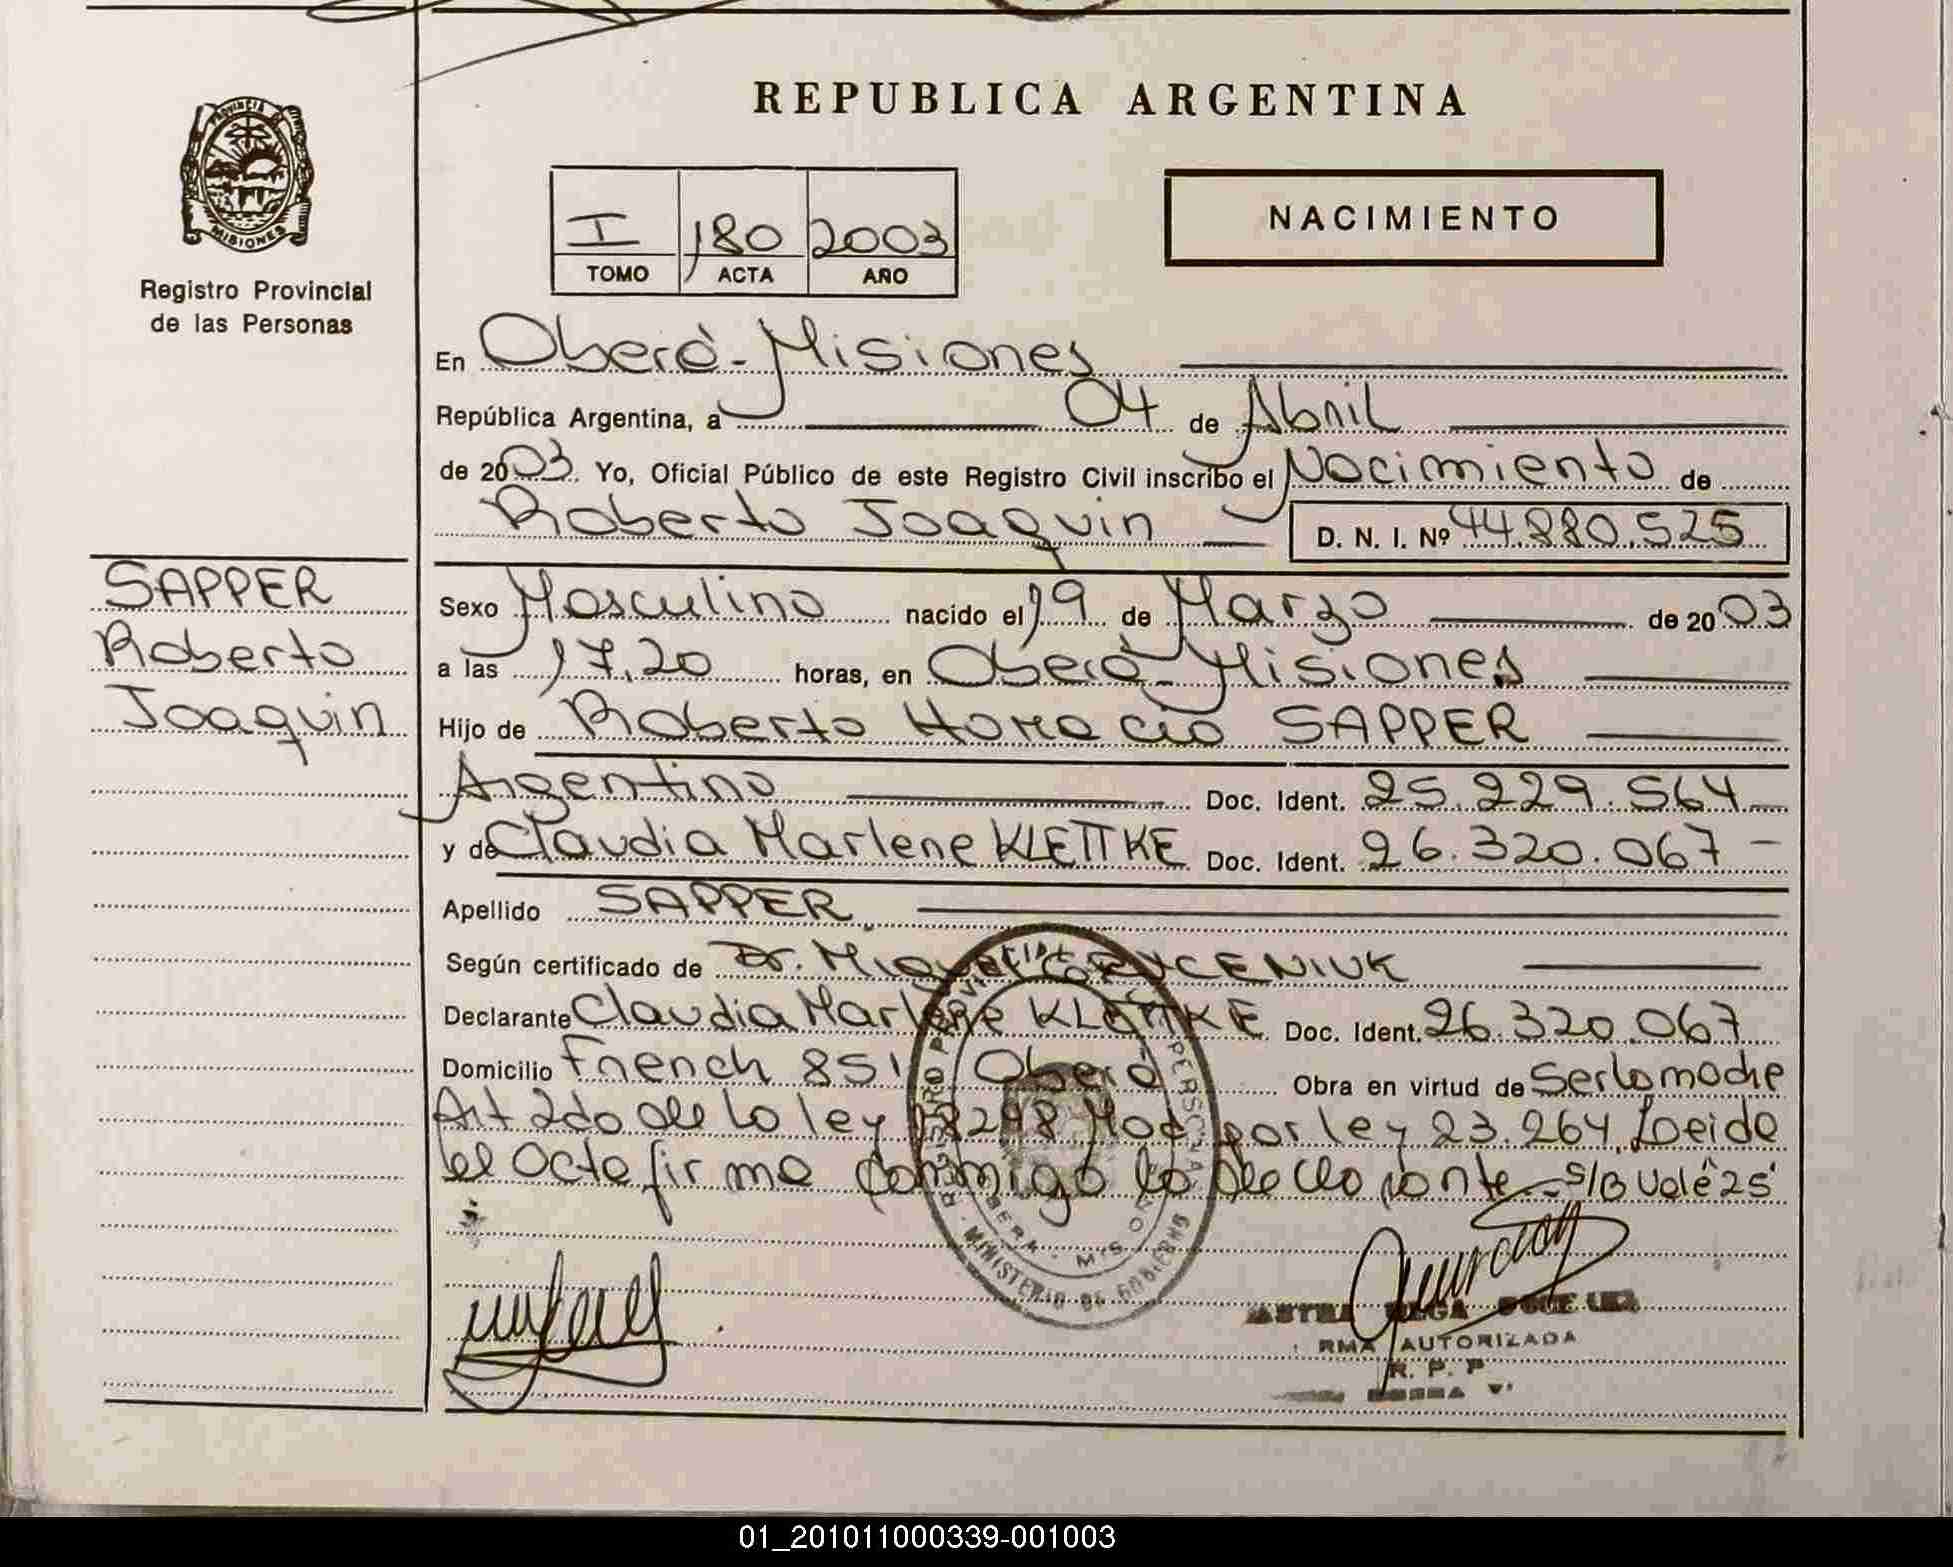 REPUBLICA ARGENTINA
PROVINCIA DE
MISIONES
Registro Provincial
de las Personas
I 180 2003
TOMO ACTA AÑO
NACIMIENTO
En Oberá-Misiones
República Argentina, a 04 de Abril
de 2003. Yo, Oficial Público de este Registro Civil inscribo el Nacimiento de
Roberto Joaquin D. N. I. Nº 44.880.525
SAPPER
Roberto
Joaquin
Sexo Masculino nacido el 19 de Marzo de 2003
a las 17,20 horas, en Oberá-Misiones
Hijo de Roberto Horacio SAPPER
Argentino Doc. Ident. 25.229.564
y de Claudia Marlene KLETTKE Doc. Ident. 26.320.067-
Apellido SAPPER
Según certificado de Dr. Miguel
Declarante Claudia Marlene KLETTKE Doc. Ident. 26.320.067
Domicilio French 851 Oberá Obra en virtud de Ser la madre
Art 2do de la ley 18248 Mod por ley 23.264, Leida
el acta firma conmigo la declarante - S/B Vale 25
MINISTERIO DE GOBIERNO
AUTORIZADA
R. P. P.
01_201011000339-001003